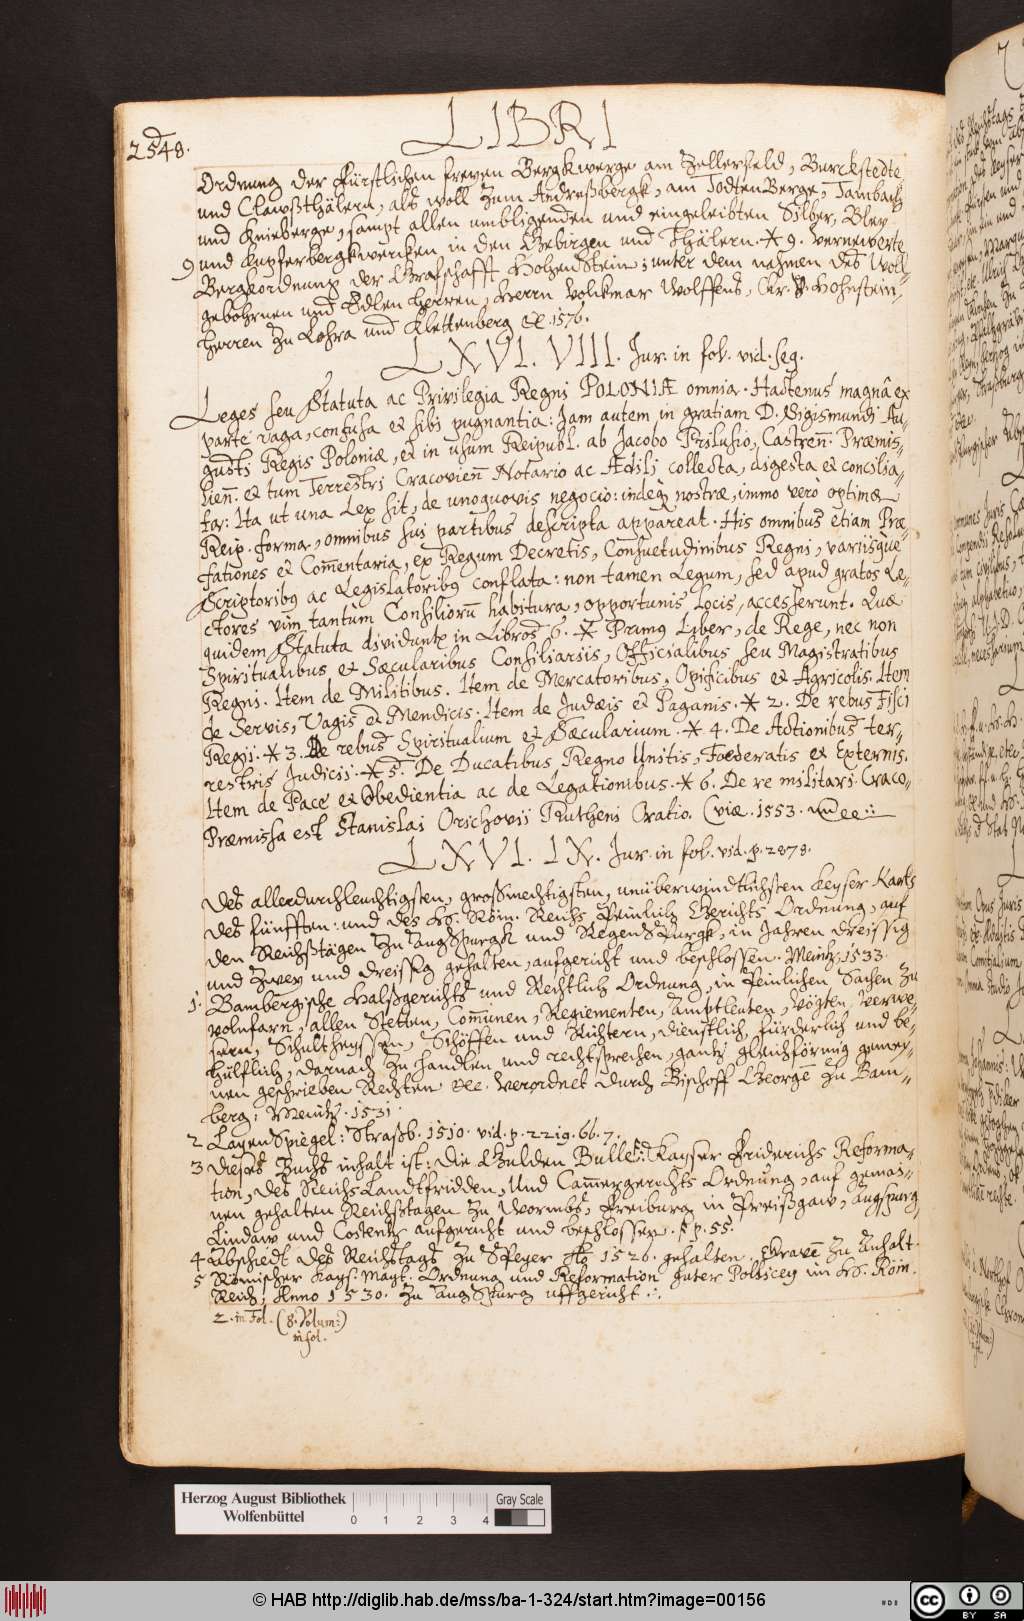 2548.
LIBRI
Ordnung der Fürstlichen freyen Bergkwerge am Zellerfeld, Burckstedte
und Clawßthälern, als woll Zum Andreßbergk, am TodtenBerge, Tambach
und Knieberge, sampt allen umbligenden und eingeleibten Silber, Bley
9 und Kupferbergkwercken in den Gebirgen und Thälern. * 9. Vernewerte
Bergkordnung der Graffschafft HohenStein; unter dem nahmen des Woll-
gebohrnen und Edlen Herren, Herrn Volckmar Wolffens, Hohnstein,
Herren zu Lohra und Klettenberg &c. 1576.
LXVI. VIII. Jur. in fol. vid. seg.
Leges seu Statuta ac Privilegia Regni POLONIÆ omnia. Hactenus magnâ ex
parte vaga, confusa et sibi pugnantia: Jam autem in gratiam D. Sigismundi Au-
gusti Regis Poloniæ, et in usum Reipubl. ab Jacobo Prilusio, Castren. Præmis-
lien. et tum Terrestri Cracovien Notario ac Ædili collecta, digesta et concilia-
ta: Ita ut una Lex sit, de unoquovis negocio: indeq nostræ, immo verò optimæ
Reip. forma, omnibus sui partibus descripta appareat. His omnibus etiam Præ
fationes et Com̄entaria, ex Regum Decretis, Consuetudinibus Regni, variisque
Scriptoribus ac Legislatoribus conflata: non tamen Legum, sed apud gratos Le-
ctores vim tantum Consiliorū habitura, opportunis Locis, accesserunt. Quæ
quidem Statuta dividuntur in Libros 6. * Primus Liber, de Rege, nec non
Spiritualibus et Sæcularibus Consiliariis, Officialibus seu Magistratibus
Regni. Item de Militibus. Item de Mercatoribus, Opificibus et Agricolis. Item
de Servis, Vagis et Mendicis. Item de Judæis et Paganis. * 2. De rebus Fisci
Regii. * 3. De rebus Spiritualium et Sæcularium. * 4. De Actionibus ter-
restris Judicii. * 5. De Ducatibus Regno Unitis, Foederatis et Externis.
Item de Pace et Obedientia ac de Legationibus. * 6. De re militari. Craco-
Præmissa est Stanislai Orichovii Rutheni Oratio. (viæ. 1553.
LXVI. IX. Jur. in fol. vid. p. 2878.
Des allerdurchleuchtigsten, großmechtigsten, unüberwindtlichsten Keyser Karls
des fünfften: und des H. Röm. Reichs Peinlich Gerichts Ordnung, auf
den Reichßtägen zu AugSpurgk und RegenSPurgk, in Jahren dreissig
und Zwey und dreissig gehalten, aufgericht und beschlossen. Meintz, 1533.
1. Bambergische Halßgerichts und Rechtlich Ordnung, in Peinlichen Sachen zu
volnfarn, allen Stetten, Com̄unen, Regiementen, Amptleuten, Vögten, Verwe-
sern, Schultheyssen, Schöffen und Richtern, dienstlich, fürderlich und be-
hülfflich, darnach zu handlen und rechtsprechen, gantz gleichförmig gemey-
nen geschrieben Rechten &c. Verordnet durch Bischoff Georgē zu Bam-
berg: Mentz. 1531.
2 LayenSpiegel: Straßb. 1510. vid. p. 2219. 66. 7.
3 Dieses Buchs inhalt ist: Die Gulden Bulle: Kayser Friderichs Reforma-
tion, des Reichs Landtfridden, Und Cam̄ergerichts Ordnung, auf gemai-
nen gehalten Reichßtagen zu Wormbs, Freiburg in Preißgaw, Augspurg
Lindaw und Costentz aufgericht und beschlossen. p. 55.
4 Abschiedt des Reichstags zu SPeyer 1526. gehalten. zu Anhalt.
5 Römischer Kays. Mayt. Ordnung und Reformation guter Pollicey im H. Röm.
Reich, Anno 1530. zu AugSPurg uffgericht.
2. in Fol. (8. Volum:)
in fol.
Herzog August Bibliothek
Wolfenbüttel
0 1 2 3 4
Gray Scale
© HAB http://diglib.hab.de/mss/ba-1-324/start.htm?image=00156
cc BY SA